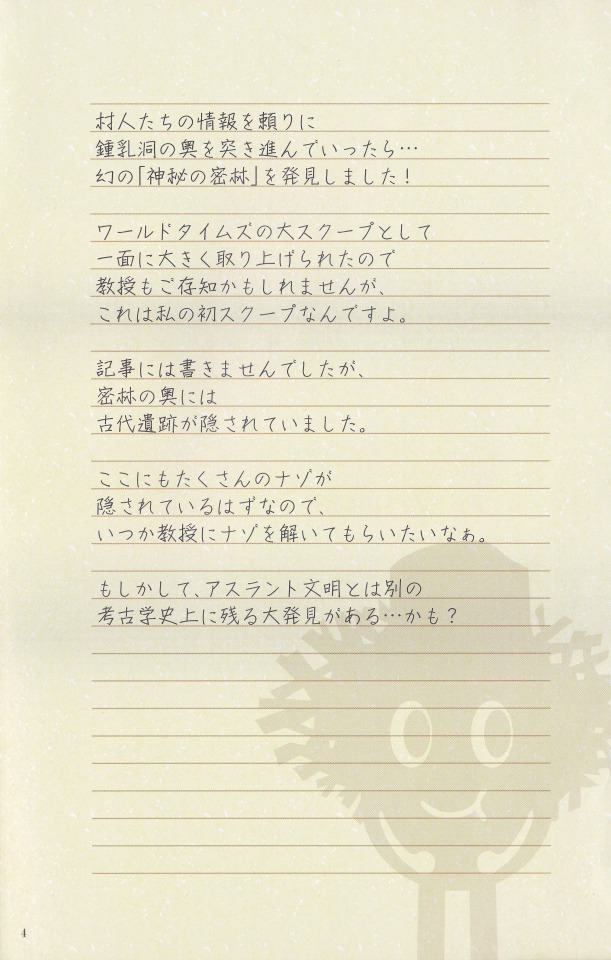 村人たちの情報を頼りに
鍾乳洞の奥を突き進んでいったら…
幻の「神秘の密林」を発見しました！
ワールドタイムズの大スクープとして
一面に大きく取り上げられたので
教授もご存知かもしれませんが、
これは私の初スクープなんですよ。
記事には書きませんでしたが、
密林の奥には
古代遺跡が隠されていました。
ここにもたくさんのナゾが
隠されているはずなので、
いつか教授にナゾを解いてもらいたいなぁ。
もしかして、アスラント文明とは別の
考古学史上に残る大発見がある…かも？
4